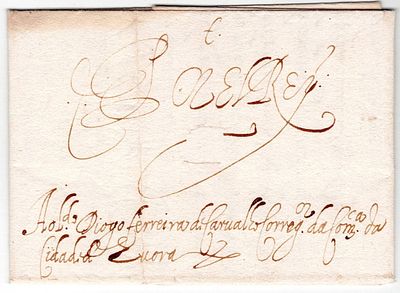 t.
Por ElRey.
Ao L.do Diogo Ferreira de Carvalho Correg.or da Com.ca da
Cidade de Evora